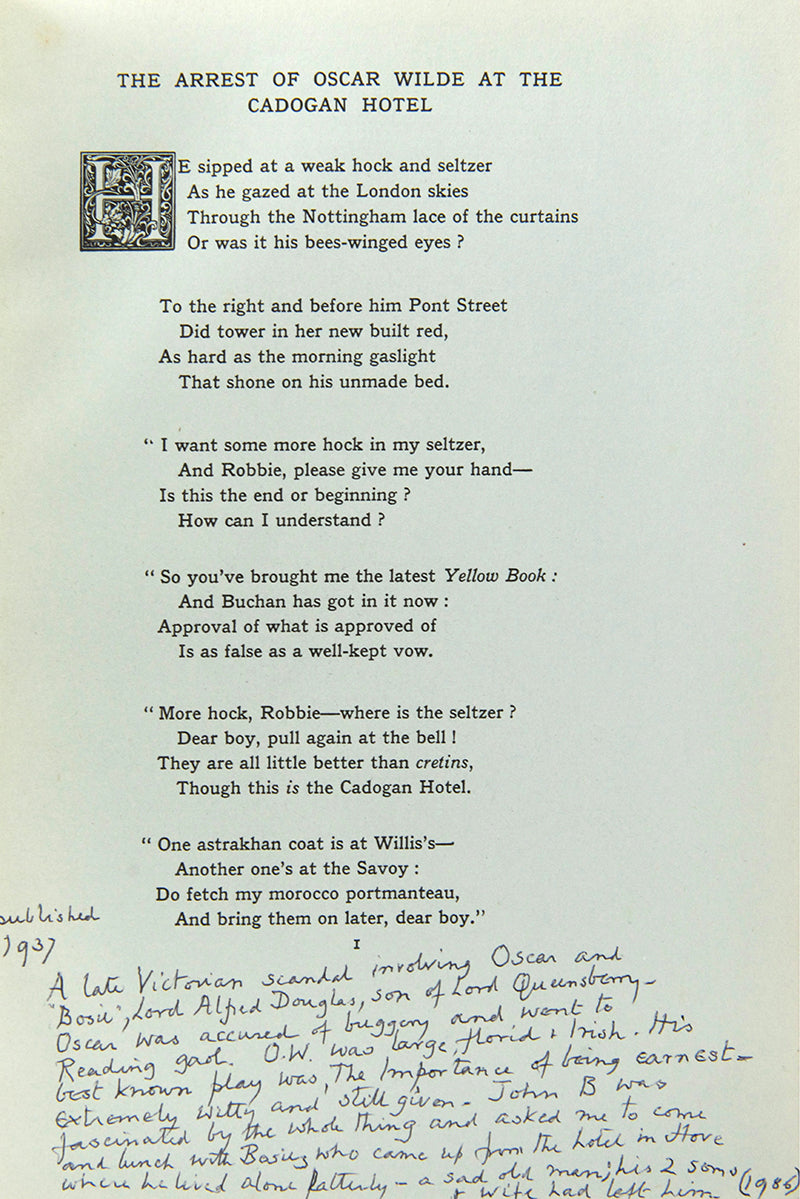 THE ARREST OF OSCAR WILDE AT THE
CADOGAN HOTEL
HE sipped at a weak hock and seltzer
As he gazed at the London skies
Through the Nottingham lace of the curtains
Or was it his bees-winged eyes ?
To the right and before him Pont Street
Did tower in her new built red,
As hard as the morning gaslight
That shone on his unmade bed.
“ I want some more hock in my seltzer,
And Robbie, please give me your hand—
Is this the end or beginning ?
How can I understand ?
“ So you’ve brought me the latest Yellow Book :
And Buchan has got in it now :
Approval of what is approved of
Is as false as a well-kept vow.
“ More hock, Robbie—where is the seltzer ?
Dear boy, pull again at the bell !
They are all little better than cretins,
Though this is the Cadogan Hotel.
“ One astrakhan coat is at Willis’s—
Another one’s at the Savoy :
Do fetch my morocco portmanteau,
And bring them on later, dear boy.”
1
published
1937
A late Victorian scandal involving Oscar and
"Bosie", Lord Alfred Douglas, son of Lord Queensberry-
Oscar was accused of buggery and went to
Reading gaol. O.W. was large, florid & Irish. His
best known play was, The Importance of being earnest-
extremely witty and still given - John B was
fascinated by the whole thing and asked me to come
and lunch with Bosie, who came up from the hotel in Hove
where he lived alone latterly - a sad old man, his 2 sons
& wife had left him (1986)